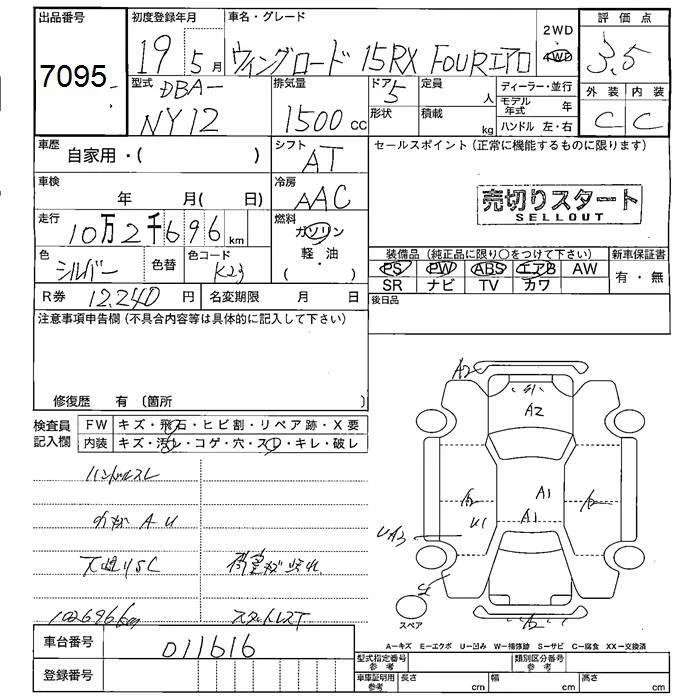 出品番号
7095
初度登録年月
19 5 月
車名・グレード
ウィングロード 15RX FOURエアロ
2WD
4WD
評価点
3.5
外装 内装
C C
型式
DBA-
NY12
排気量
1500 cc
ドア
5
形状
定員
人
積載
kg
ディーラー・並行
モデル年式 年
ハンドル 左・右
車歴
自家用・( )
シフト
AT
セールスポイント (正常に機能するものに限ります)
売切りスタート
SELLOUT
車検
年 月( 日)
冷房
AAC
走行
10万2千696 km
燃料
ガソリン
軽・油
( )
色
シルバー
色替
色コード
K23
R券 12,240 円
名変期限 月 日
装備品 (純正品に限り○をつけて下さい)
PS PW ABS エアB AW
SR ナビ TV カワ
新車保証書
有・無
後日品
注意事項申告欄 (不具合内容等は具体的に記入して下さい)
修復歴 有 (箇所 )
検査員記入欄
FW キズ・飛石・ヒビ割・リペア跡・X要
内装 キズ・汚レ・コゲ・穴・スレ・キレ・破レ
ハンドルスレ
AU
SC
102696km
A2
A2
A1
A1
A2
U1
A2
スペア
A－キズ E－エクボ U－凹み W－補修跡 S－サビ C－腐食 XX－交換済
車台番号
011616
登録番号
型式指定番号
参考
類別区分番号
参考
車庫証明用
参考
長さ cm
幅 cm
高さ cm